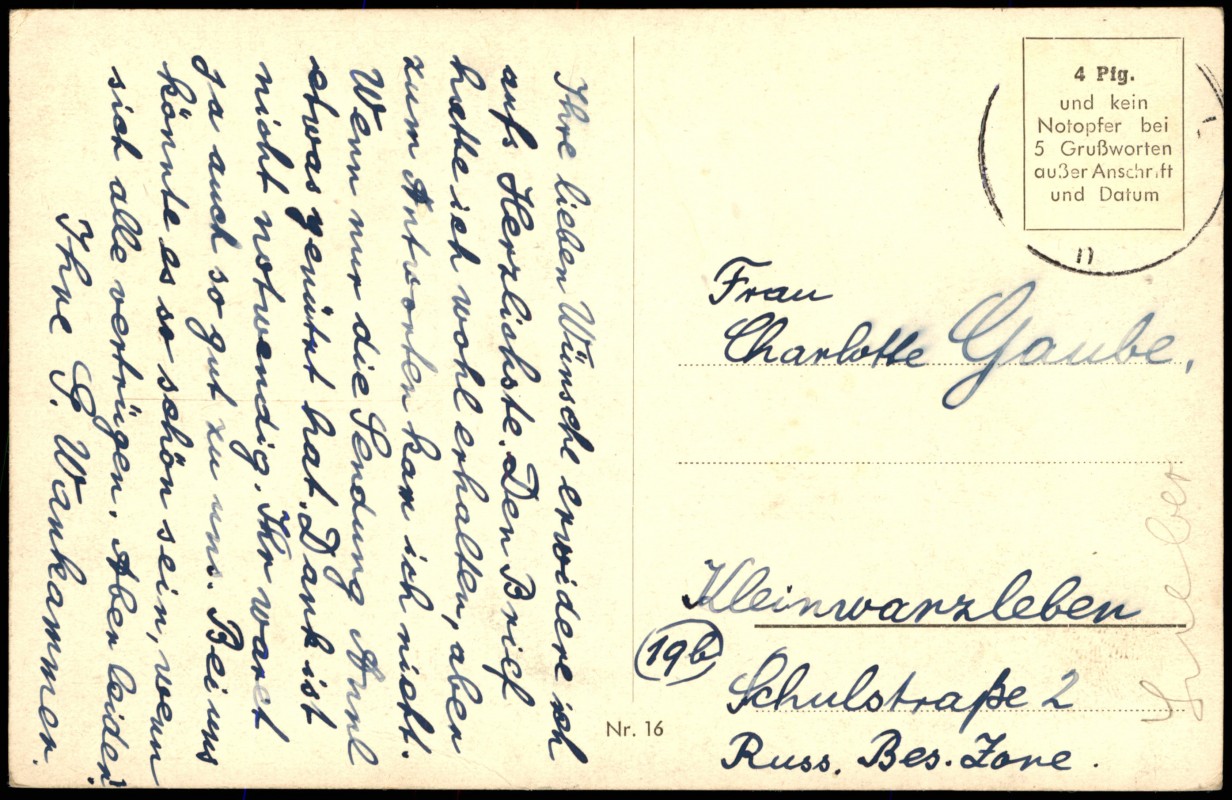 Ihre lieben Wünsche erwidere ich
aufs Herzlichste. Den Brief
hatte ich wohl erhalten, aber
zum Antworten kam ich nicht.
Wenn nur die Sendung
etwas genützt hat. Dank ist
nicht notwendig. Ihr waret
Ja auch so gut zu uns. Bei uns
könnte es so schön sein, wenn
sich alle vertrügen. Aber leider!
Ihre S. Wankammer.
4 Pfg.
und kein
Notopfer bei
5 Grußworten
außer Anschrift
und Datum
Frau
Charlotte Gaube,
Kleinwanzleben
19b
Schulstraße 2
Russ. Bes. Zone.
Nr. 16